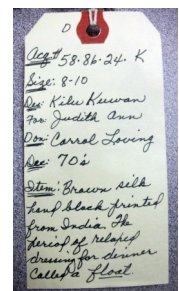 D
Acq# 58.86.24. K
Size: 8-10
Des: Kilu Kuwan
For: Judith Ann
Don: Carrol Loving
Dec: 70's
Item: Brown silk
hand block printed
from India. The
period of relaxed
dressing for dinner
Called a float.